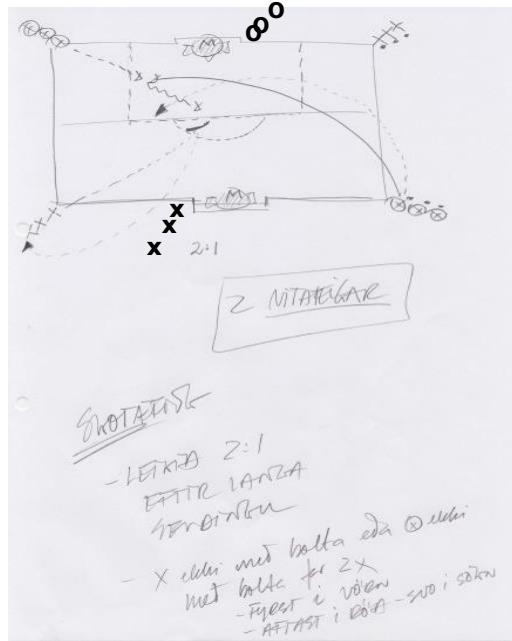 2:1
2 VÍTATEIGAR
SKOTÆFING
- LEIKIÐ 2:1
EFTIR LANGA
SENDINGU
- X ekki með bolta eða ⓧ ekki
með bolta fer 2X
- FYRST í VÖRN
- AFTAST í RÖÐ - SVO í SÓKN